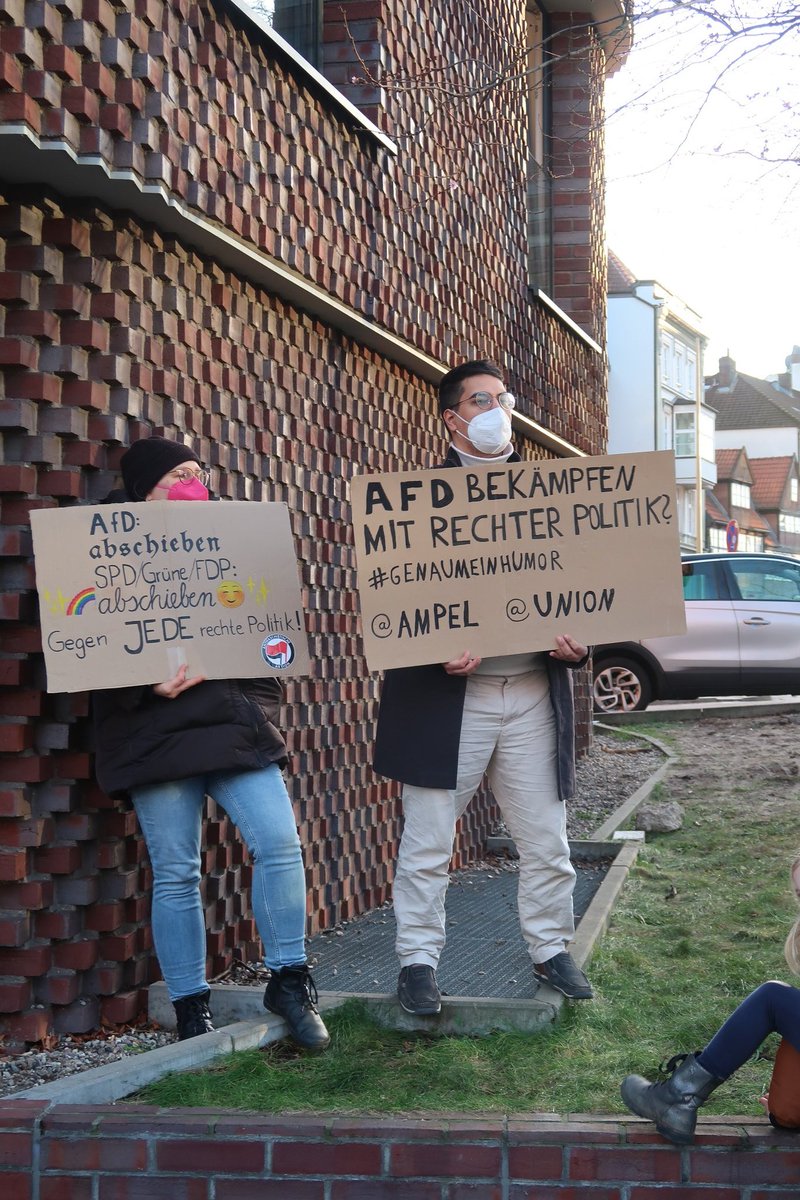 AfD:
abschieben
SPD/Grüne/FDP:
abschieben
Gegen JEDE rechte Politik!
AFD BEKÄMPFEN
MIT RECHTER POLITIK?
#GENAUMEINHUMOR
@AMPEL @UNION